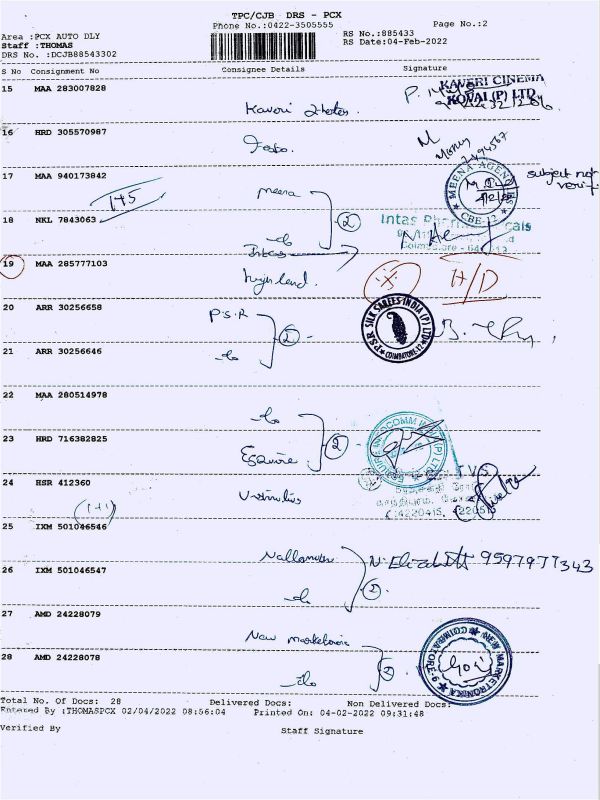 TPC/CJB DRS - PCX
Phone No.:0422-3505555 Page No.:2
Area :PCX AUTO DLY RS No.:885433
Staff :THOMAS RS Date:04-Feb-2022
DRS No. :DCJB88543302
S No Consignment No Consignee Details Signature
15 MAA 283007828
KAVERI CINEMA
KOVAI (P) LTD
Kaveri
16 HRD 305570987
17 MAA 940173842
subject not
verif
1+5
meera
MEENA AGENCIES
CBE-12
18 NKL 7843063
2
Intas Pharmaceuticals
Coimbatore - 641 012
Intas
19 MAA 285777103
highland.
H/D
20 ARR 30256658
P.S.R
2
P.S.R SILK SAREES INDIA (P) LTD
COIMBATORE-12
21 ARR 30256646
do
22 MAA 280514978
do
23 HRD 716382825
Esquire
2
24 HSR 412360
TVS
(1+1)
25 IXM 501046546
N. Elizabeth 9597977343
26 IXM 501046547
do
2
27 AMD 24228079
New marketronic
NEW MARKETRONIKA
COIMBATORE-9
28 AMD 24228078
do
2
Total No. Of Docs: 28 Delivered Docs: Non Delivered Docs:
Entered By :THOMASPCX 02/04/2022 08:56:04 Printed On: 04-02-2022 09:31:48
Verified By Staff Signature